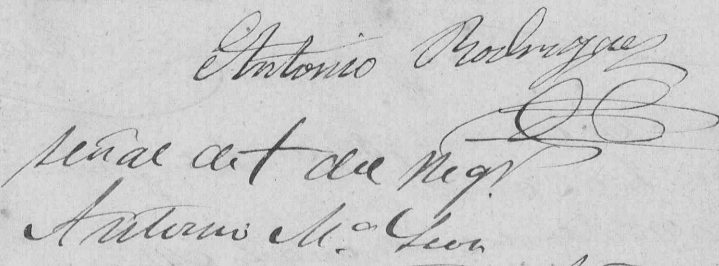 Antonio Rodriguez
señal de † del neg.r
Antonio Ma Leon